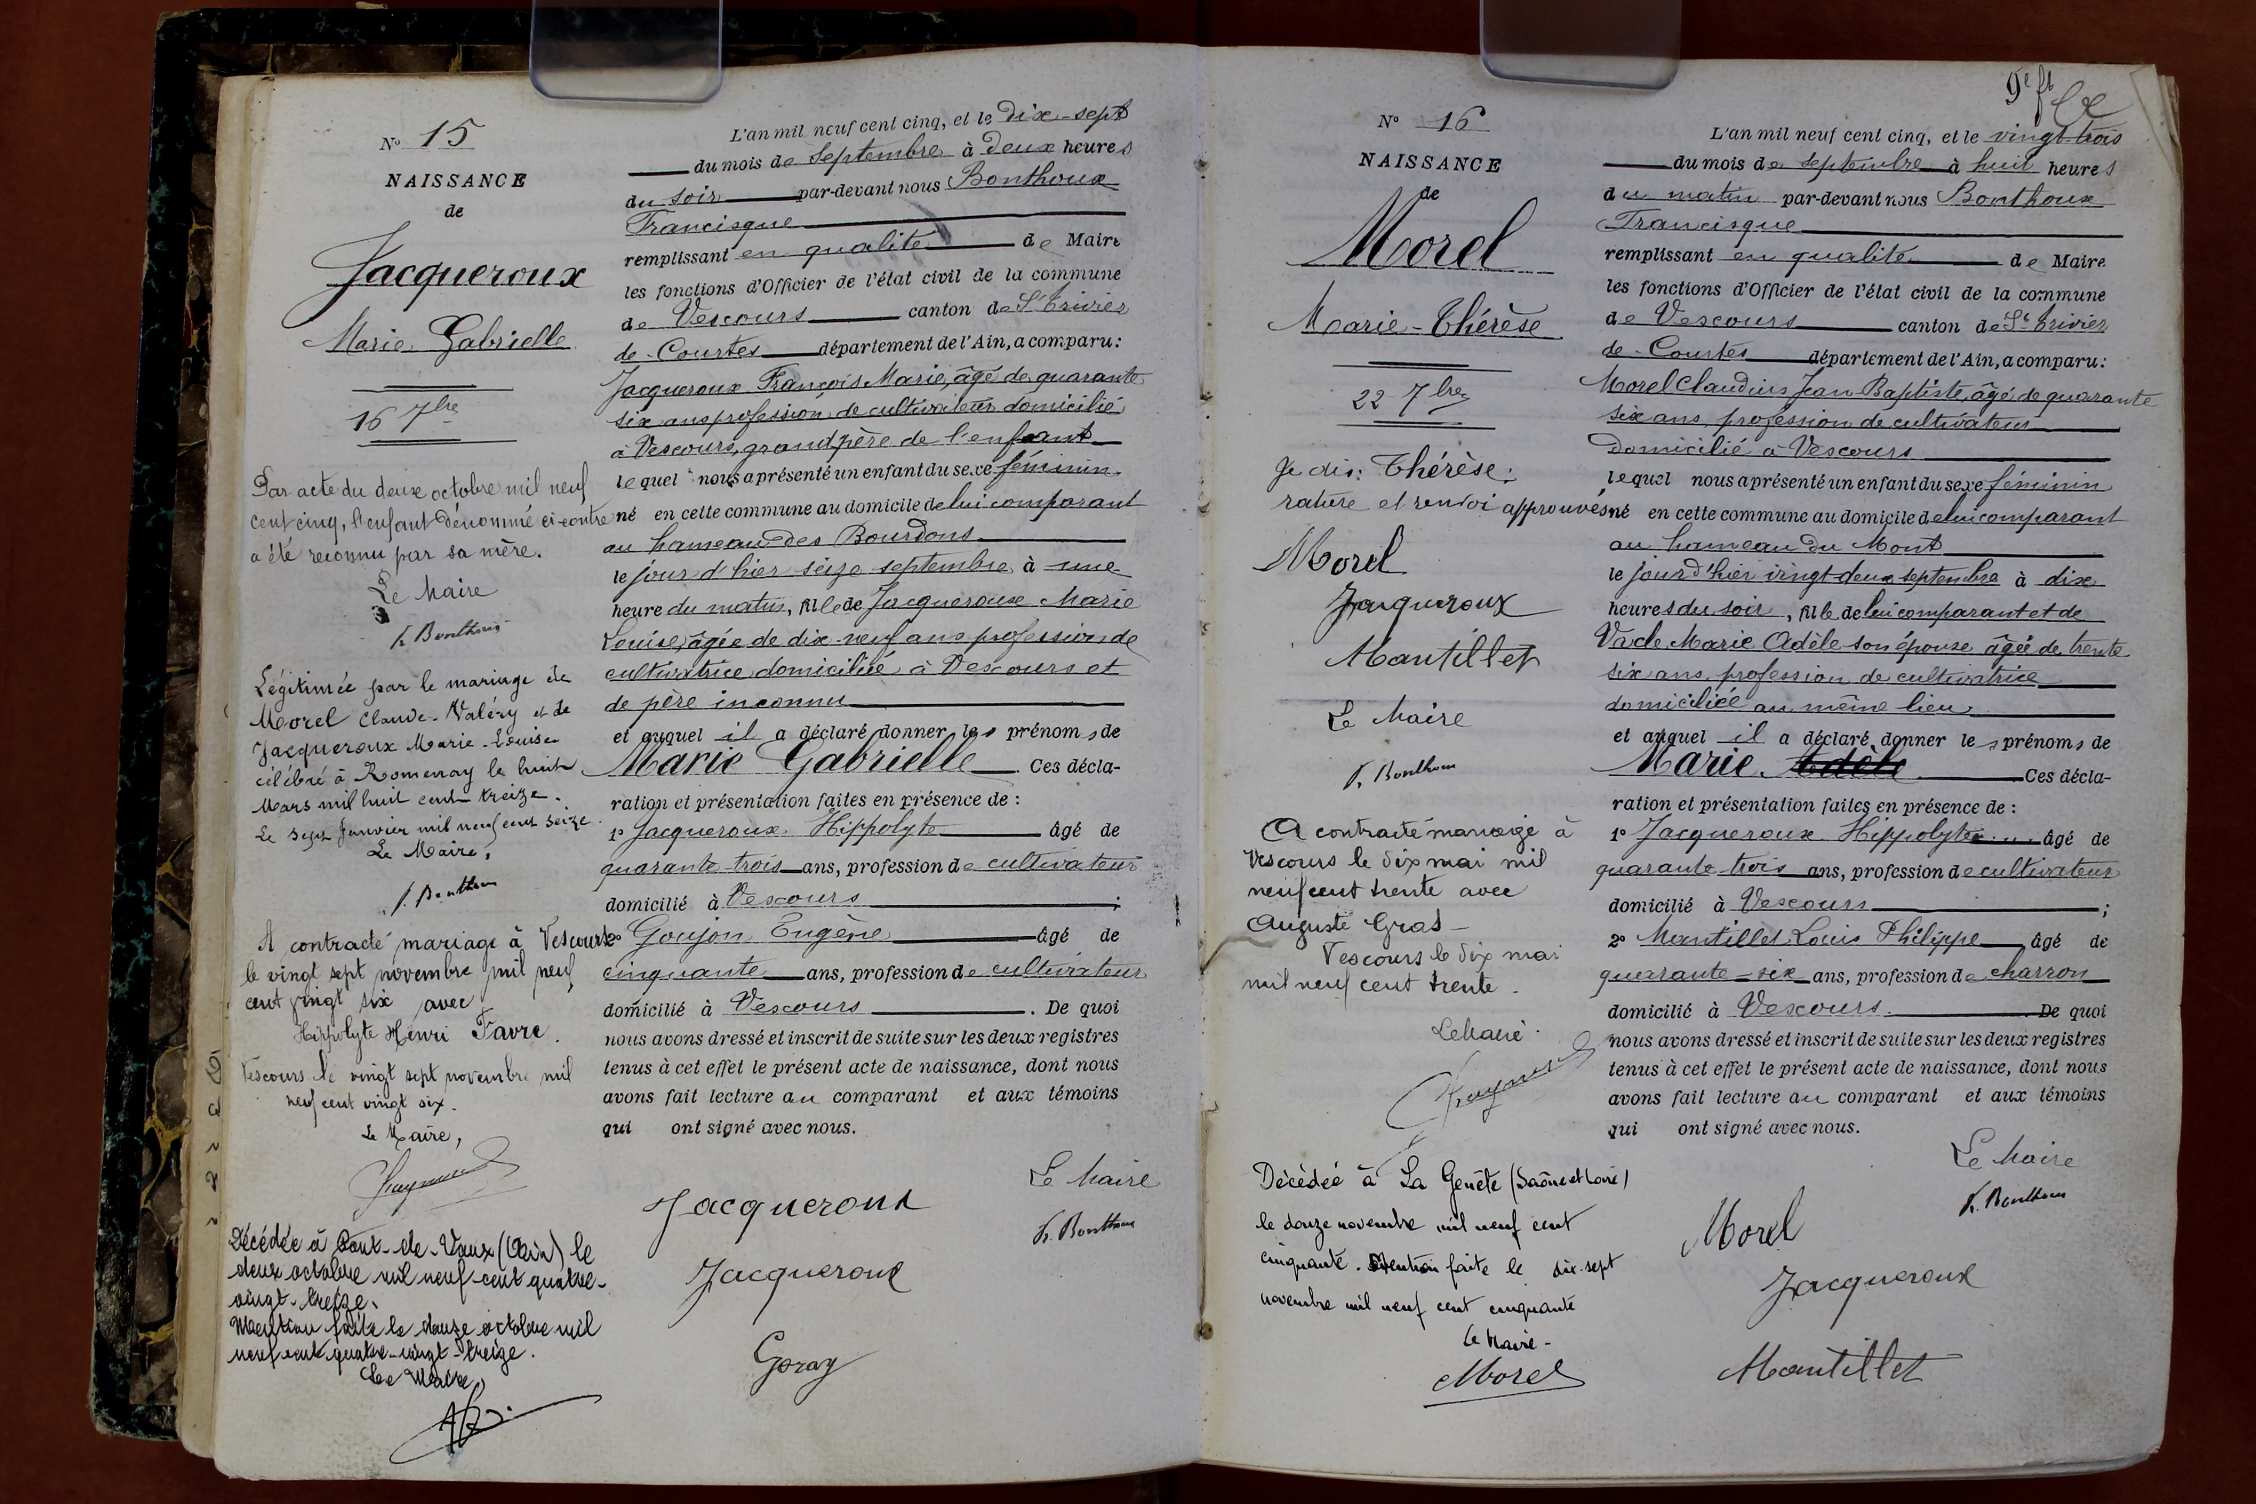 Nº 15
NAISSANCE
de
Jacqueroux
Marie Gabrielle
16 7bre
Par acte du deux octobre mil neuf
cent cinq, l'enfant dénommé ci-contre
a été reconnu par sa mère.
Le Maire
F. Bonthoux
Légitimée par le mariage de
Morel Claude-Valéry et de
Jacqueroux Marie-Louise
célébré à Romenay le huit
Mars mil huit cent treize.
Le sept Janvier mil neuf cent seize.
Le Maire,
F. Bonthoux
A contracté mariage à Vescours
le vingt sept novembre mil neuf
cent vingt six avec
Hippolyte Henri Favre.
Vescours le vingt sept novembre mil
neuf cent vingt six.
Le Maire,
Décédée à Pont-de-Vaux (Ain) le
deux octobre mil neuf cent quatre-
vingt-treize.
Mention faite le douze octobre mil
neuf cent quatre-vingt-treize.
Le Maire,
L'an mil neuf cent cinq, et le dix-sept
du mois de Septembre à Deux heures
du soir par-devant nous Bonthoux
Francisque
remplissant en qualité de Maire
les fonctions d'Officier de l'état civil de la commune
de Vescours canton de St Trivier
de-Courtes département de l'Ain, a comparu:
Jacqueroux François Marie, âgé de quarante
six ans profession de cultivateur domicilié
à Vescours, grand père de l'enfant
lequel nous a présenté un enfant du sexe féminin
né en cette commune au domicile de lui comparant
au hameau des Bourdons
le jour d'hier seize septembre à une
heure du matin, fille de Jacqueroux Marie
Louise, âgée de dix-neuf ans profession de
cultivatrice domiciliée à Vescours et
de père inconnu
et auquel il a déclaré donner les prénoms de
Marie Gabrielle Ces décla-
ration et présentation faites en présence de :
1º Jacqueroux Hippolyte âgé de
quarante-trois ans, profession de cultivateur
domicilié à Vescours ;
2º Goujon Eugène âgé de
cinquante ans, profession de cultivateur
domicilié à Vescours . De quoi
nous avons dressé et inscrit de suite sur les deux registres
tenus à cet effet le présent acte de naissance, dont nous
avons fait lecture au comparant et aux témoins
qui ont signé avec nous.
Le Maire
Jacqueroux
F. Bonthoux
Jacqueroux
Nº 16
NAISSANCE
de
Morel
Marie-Thérèse
22 7bre
Je dis: Thérèse:
rature et renvoi approuvés
Morel
Jacqueroux
Mantillet
Le Maire
F. Bonthoux
A contracté mariage à
Vescours le dix mai mil
neuf cent trente avec
Auguste Gras
Vescours le dix mai
mil neuf cent trente.
Le Maire.
Décédée à La Genête (Saône et Loire)
le douze novembre mil neuf cent
cinquante. Mention faite le dix-sept
novembre mil neuf cent cinquante
Le Maire
Morel
9e ft
L'an mil neuf cent cinq, et le vingt-trois
du mois de septembre à huit heures
du matin par-devant nous Bonthoux
Francisque
remplissant en qualité de Maire
les fonctions d'Officier de l'état civil de la commune
de Vescours canton de St Trivier
de-Courtes département de l'Ain, a comparu:
Morel Claudius Jean Baptiste, âgé de quarante
six ans, profession de cultivateur
Domicilié à Vescours
lequel nous a présenté un enfant du sexe féminin
né en cette commune au domicile de lui comparant
au hameau du Mont
le jour d'hier vingt deux septembre à dix
heures du soir, fille de lui comparant et de
Vacle Marie Adèle son épouse âgée de trente
six ans, profession de cultivatrice
domiciliée au même lieu
et auquel il a déclaré donner les prénoms de
Marie Adèle Ces décla-
ration et présentation faites en présence de :
1º Jacqueroux Hippolyte âgé de
quarante-trois ans, profession de cultivateur
domicilié à Vescours ;
2º Mantillet Louis Philippe âgé de
quarante-six ans, profession de charron
domicilié à Vescours. De quoi
nous avons dressé et inscrit de suite sur les deux registres
tenus à cet effet le présent acte de naissance, dont nous
avons fait lecture au comparant et aux témoins
qui ont signé avec nous.
Le Maire
F. Bonthoux
Morel
Jacqueroux
Mantillet